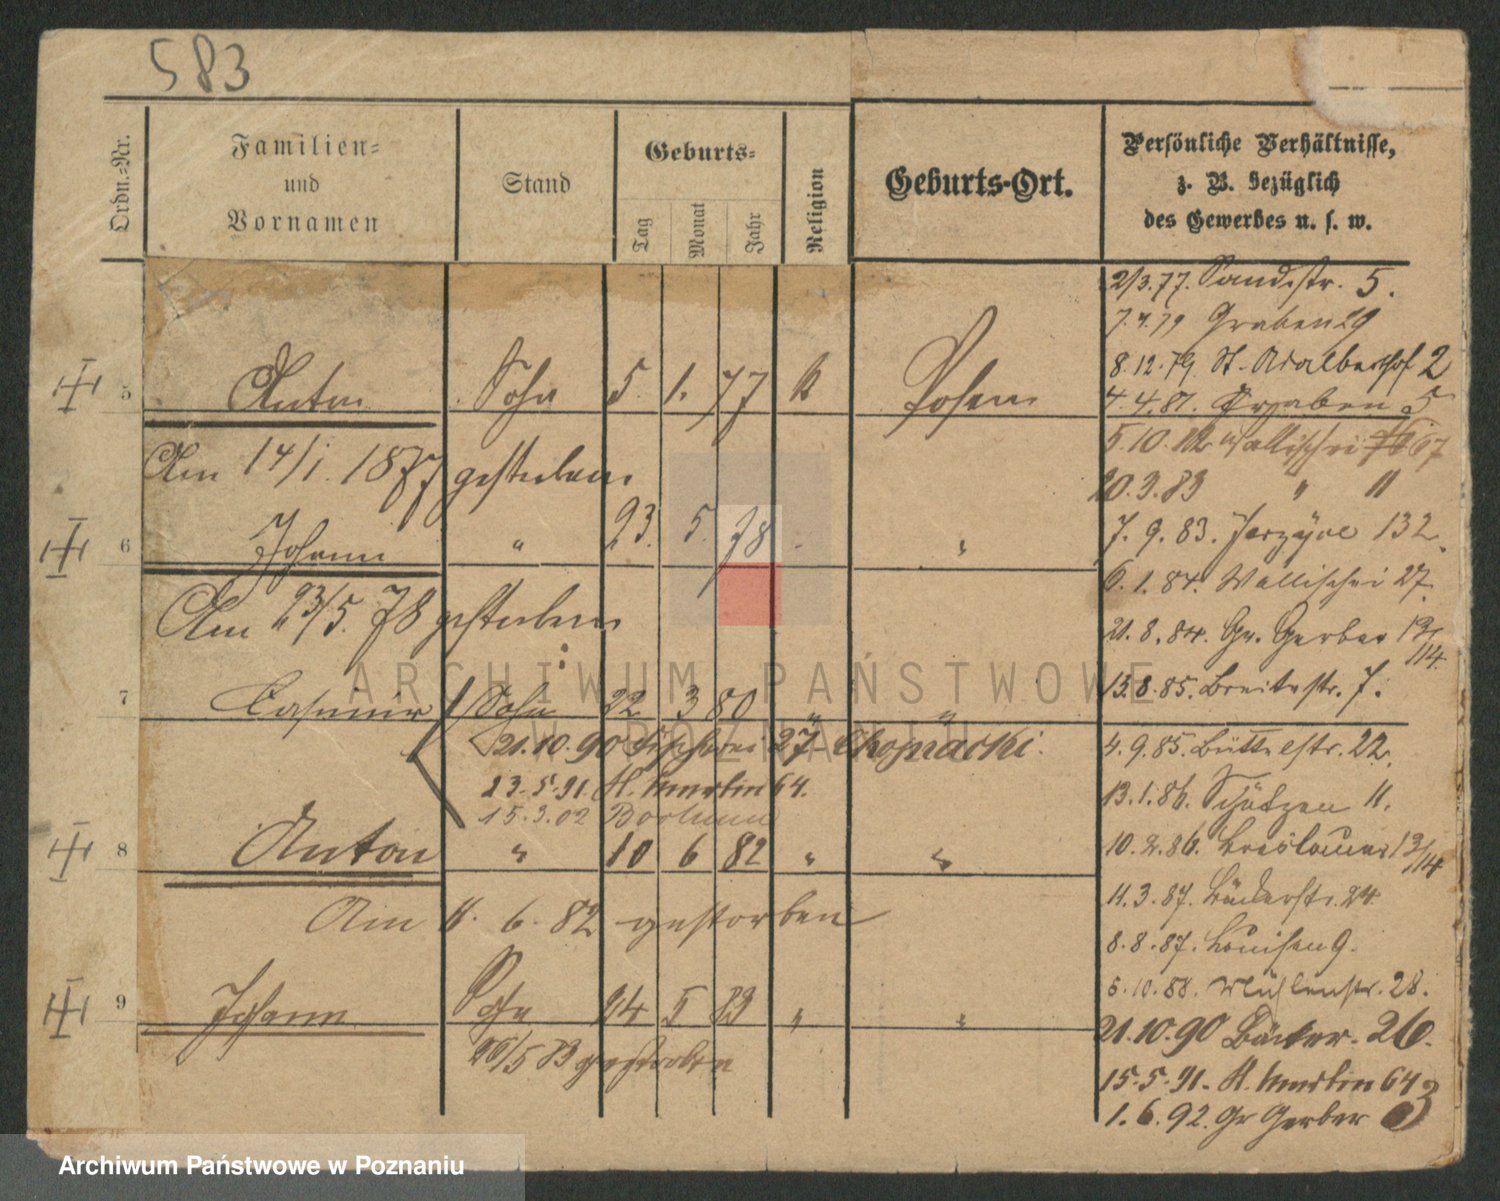 583
Ordn.-Nr.
Familien-
und
Vornamen
Stand
Geburts-
Tag
Monat
Jahr
Religion
Geburts-Ort.
Persönliche Verhältnisse,
z. B. bezüglich
des Gewerbes u. s. w.
5 Anton Sohn 5. 1. 77 k Posen
Am 14/1. 1877 gestorben
6 Johann " 23. 5. 78 "
Am 23/5. 78 gestorben
7 Casimir Sohn 22 3 80 " "
21.10.90 Fischerei 27
23.5.91. St. Martin 64.
15.3.02 Bochum
8 Anton " 10 6 82 " "
Am 11. 6. 82 gestorben
9 Johann Sohn 24 5 83 " "
26/5 83 gestorben
2/3.77. Sandstr. 5.
7.4.79 Graben 29
8.12.79 St. Adalberthof 2
4.4.81. Graben 5
5.10.82 Wallischei 67
20.3.83 " 11
7. 9. 83. Jerzyce 132.
6. 1. 84. Wallischei 27.
21. 8. 84. Gr. Gerber 13/14.
13.8.85. Breitestr. 7.
4.9.85. Büttelstr. 22.
13.1.86. Schützen 11.
10.2.86. Breslauer 13/14
11.3.87. Bäckerstr. 24
8.8.87. Louisen 9.
5.10.88. Mühlenstr. 28.
21.10.90 Bäcker. 26.
15.5.91. St. Martin 64
1.6.92. Gr Gerber
ARCHIWUM PAŃSTWOWE
W POZNANIU
Archiwum Państwowe w Poznaniu